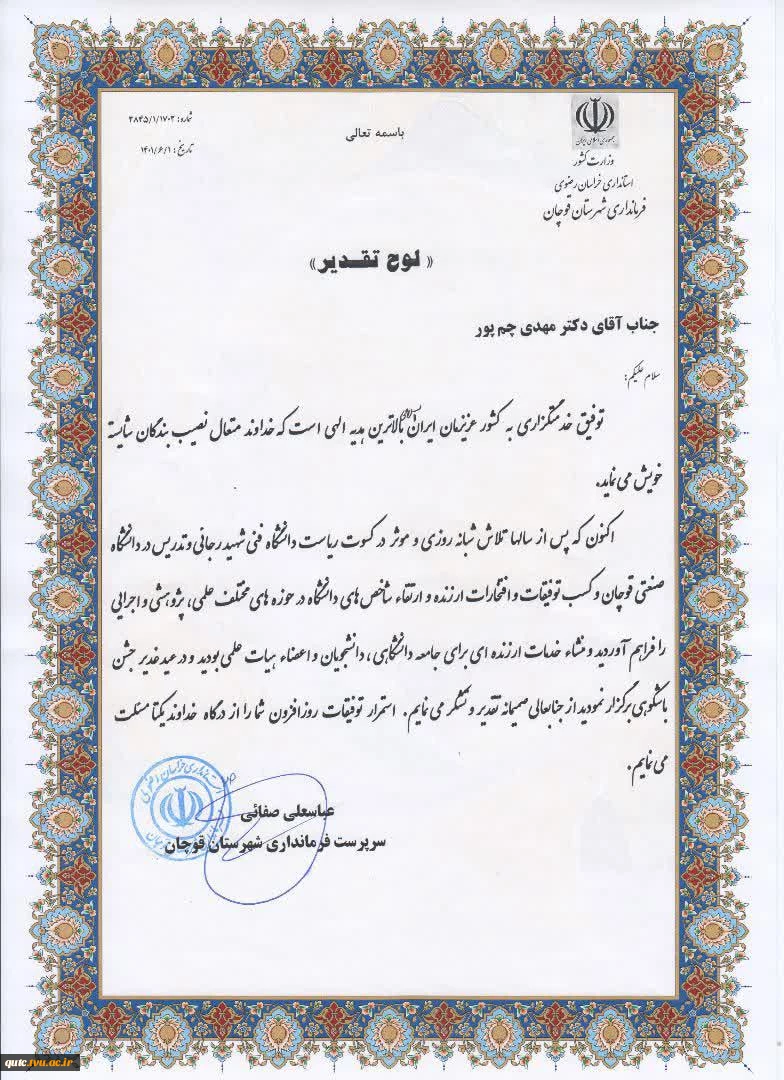 شماره: ۳۸۴۵/۱/۱۷۰۲
تاریخ: ۱۴۰۱/۶/۱
باسمه تعالی
جمهوری اسلامی ایران
وزارت کشور
استانداری خراسان رضوی
فرمانداری شهرستان قوچان
« لوح تقدیر»
جناب آقای دکتر مهدی چم پور
سلام علیکم:
توفیق خدمتگزاری به کشور عزیزمان ایران بالاترین هدیه الهی است که خداوند متعال نصیب بندگان شایسته
خویش می نماید.
اکنون که پس از سالها تلاش شبانه روزی و موثر در کسوت ریاست دانشگاه فنی شهید رجائی و تدریس در دانشگاه
صنعتی قوچان و کسب توفیقات و افتخارات ارزنده و ارتقاء شاخص های دانشگاه در حوزه های مختلف علمی، پژوهشی و اجرایی
را فراهم آوردید و منشاء خدمات ارزنده ای برای جامعه دانشگاهی، دانشجویان و اعضاء هیات علمی بودید و در عید غدیر جشن
باشکوهی برگزار نمودید از جنابعالی صمیمانه تقدیر و تشکر می نمایم. استمرار توفیقات روزافزون شما را از درگاه خداوند یکتا مسئلت
می نمایم.
عباسعلی صفائی
سرپرست فرمانداری شهرستان قوچان
qutc.tvu.ac.ir